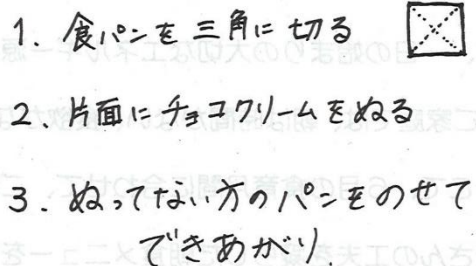 1. 食パンを三角に切る
2. 片面にチョコクリームをぬる
3. ぬってない方のパンをのせて
できあがり.